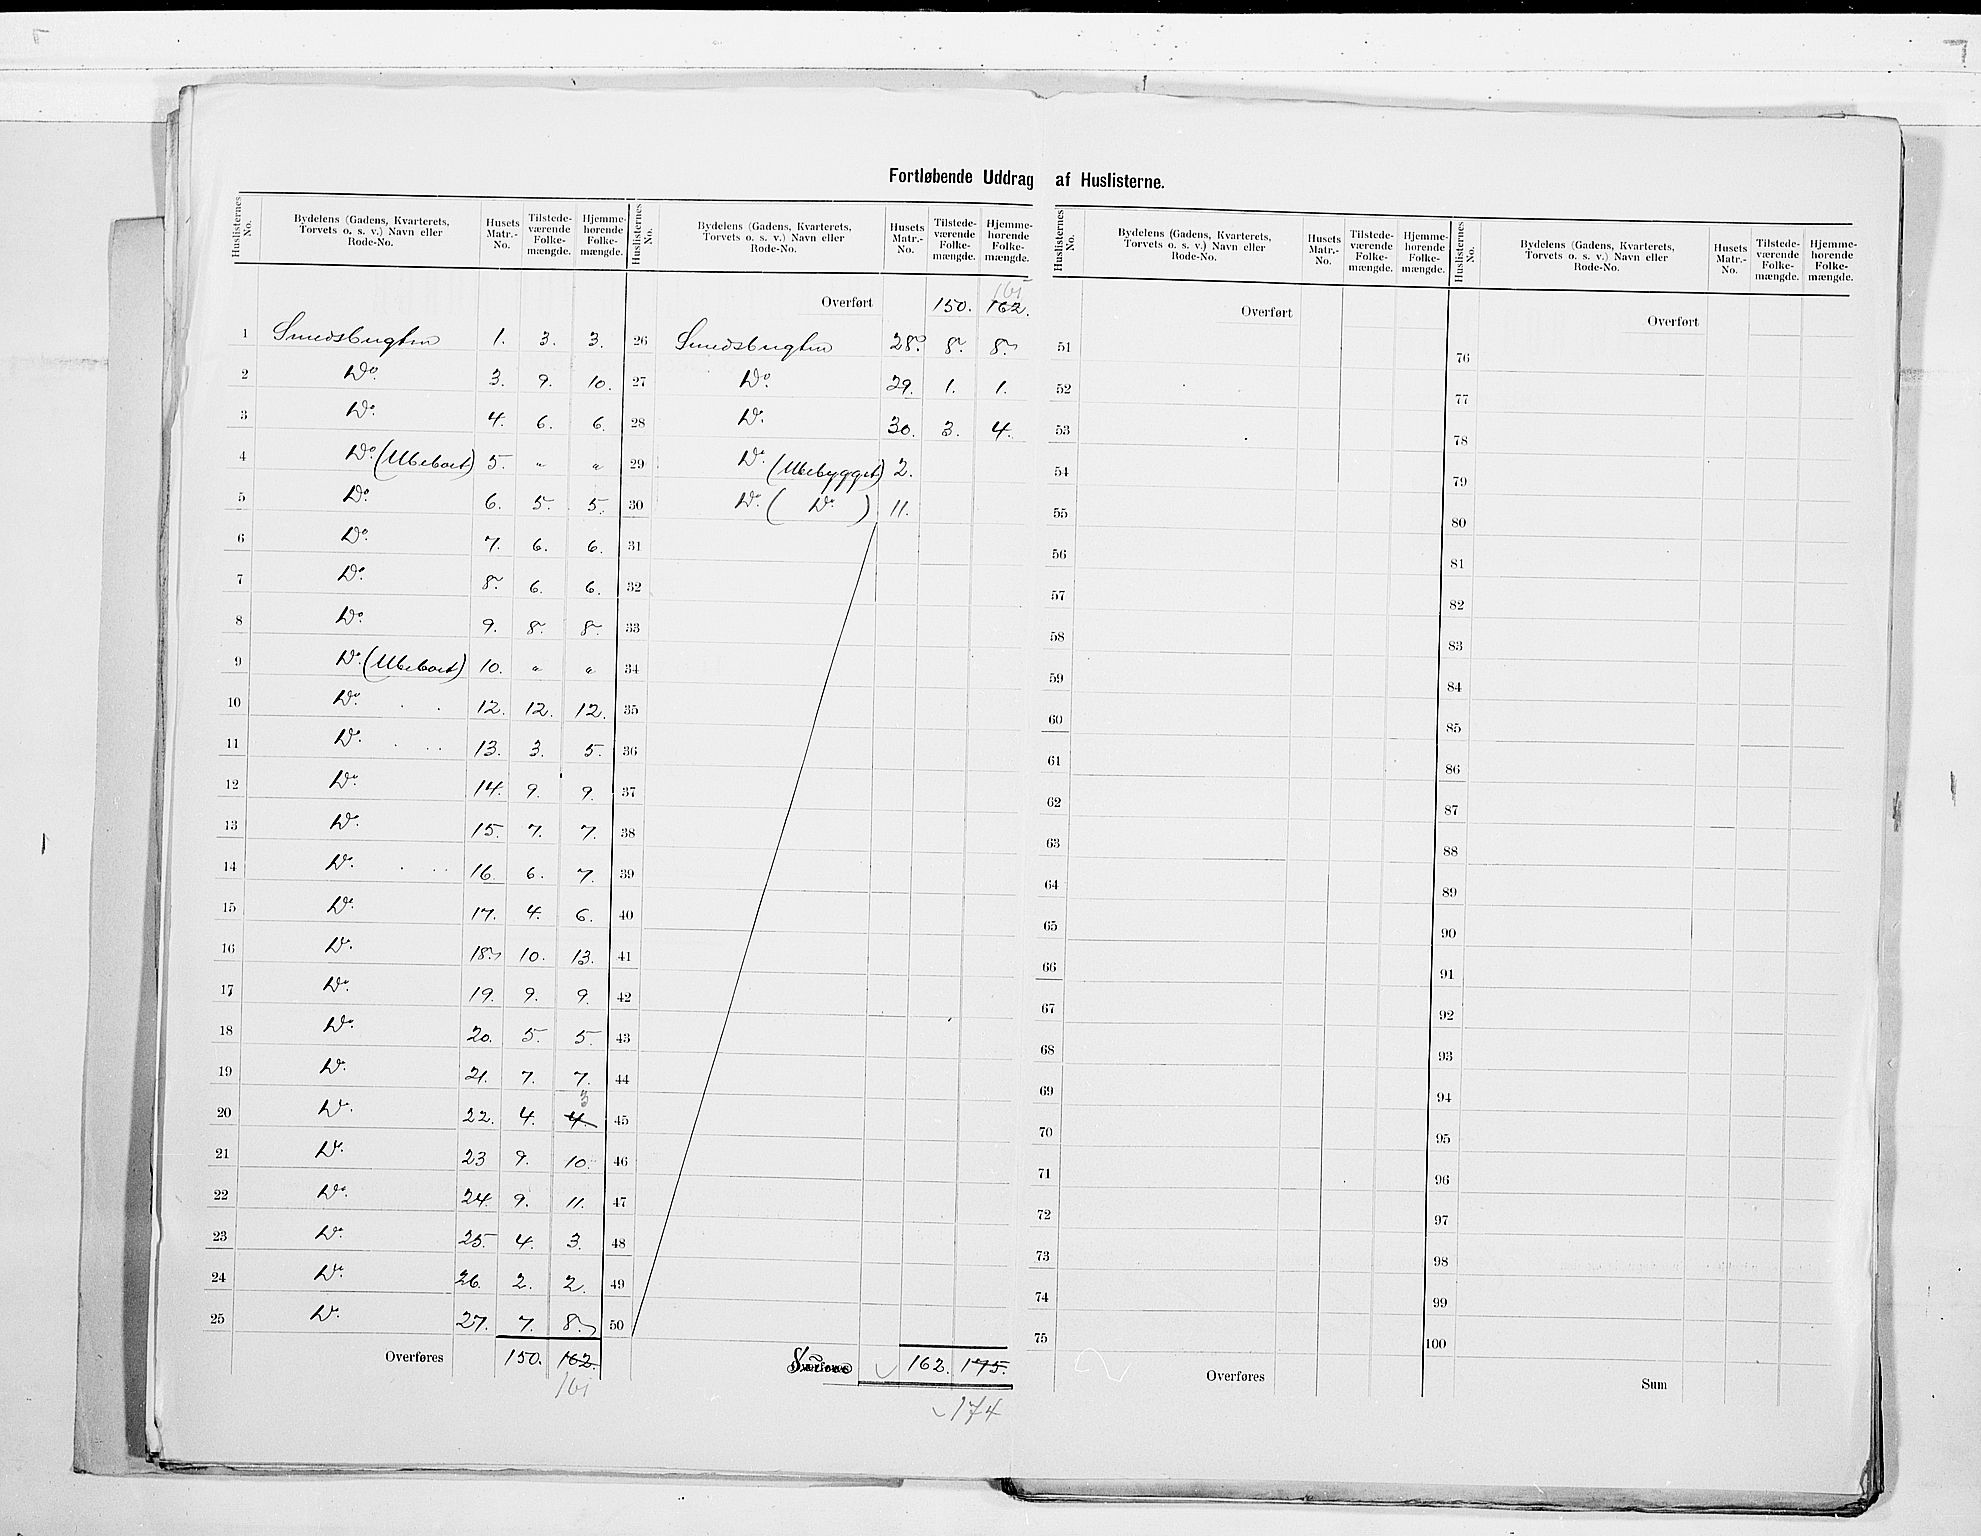 Fortløbende Uddrag af Huslisterne.
Huslisternes No. | Bydelens (Gadens, Kvarterets, Torvets o. s. v.) Navn eller Rode-No. | Husets Matr.-No. | Tilstedeværende Folkemængde. | Hjemmehørende Folkemængde.
1 Smedsbugten 1. 3. 3.
2 Do. 3. 9. 10.
3 Do. 4. 6. 6.
4 Do. (Ubeboet) 5. " "
5 Do. 6. 5. 5.
6 Do. 7. 6. 6.
7 Do. 8. 6. 6.
8 Do. 9. 8. 8.
9 Do. (Ubeboet) 10. " "
10 Do. 12. 12. 12.
11 Do. 13. 3. 5.
12 Do. 14. 9. 9.
13 Do. 15. 7. 7.
14 Do. 16. 6. 7.
15 Do. 17. 4. 6.
16 Do. 18. 10. 13.
17 Do. 19. 9. 9.
18 Do. 20. 5. 5.
19 Do. 21. 7. 7.
20 Do. 22. 4. 4. 3
21 Do. 23 9. 10.
22 Do. 24. 9. 11.
23 Do. 25. 4. 3.
24 Do. 26. 2. 2.
25 Do. 27. 7. 8.
Overføres 150. 162.
161
Huslisternes No. | Bydelens (Gadens, Kvarterets, Torvets o. s. v.) Navn eller Rode-No. | Husets Matr.-No. | Tilstedeværende Folkemængde. | Hjemmehørende Folkemængde.
161
Overført 150. 162.
26 Smedsbugten 28. 8. 8.
27 Do. 29. 1. 1.
28 Do. 30. 3. 4.
29 Do. (Ubebygget) 2.
30 Do. ( Do. ) 11.
31
32
33
34
35
36
37
38
39
40
41
42
43
44
45
46
47
48
49
50
Overføres Summa 162. 175.
174
Huslisternes No. | Bydelens (Gadens, Kvarterets, Torvets o. s. v.) Navn eller Rode-No. | Husets Matr.-No. | Tilstedeværende Folkemængde. | Hjemmehørende Folkemængde.
Overført
51
52
53
54
55
56
57
58
59
60
61
62
63
64
65
66
67
68
69
70
71
72
73
74
75
Overføres
Huslisternes No. | Bydelens (Gadens, Kvarterets, Torvets o. s. v.) Navn eller Rode-No. | Husets Matr.-No. | Tilstedeværende Folkemængde. | Hjemmehørende Folkemængde.
Overført
76
77
78
79
80
81
82
83
84
85
86
87
88
89
90
91
92
93
94
95
96
97
98
99
100
Sum